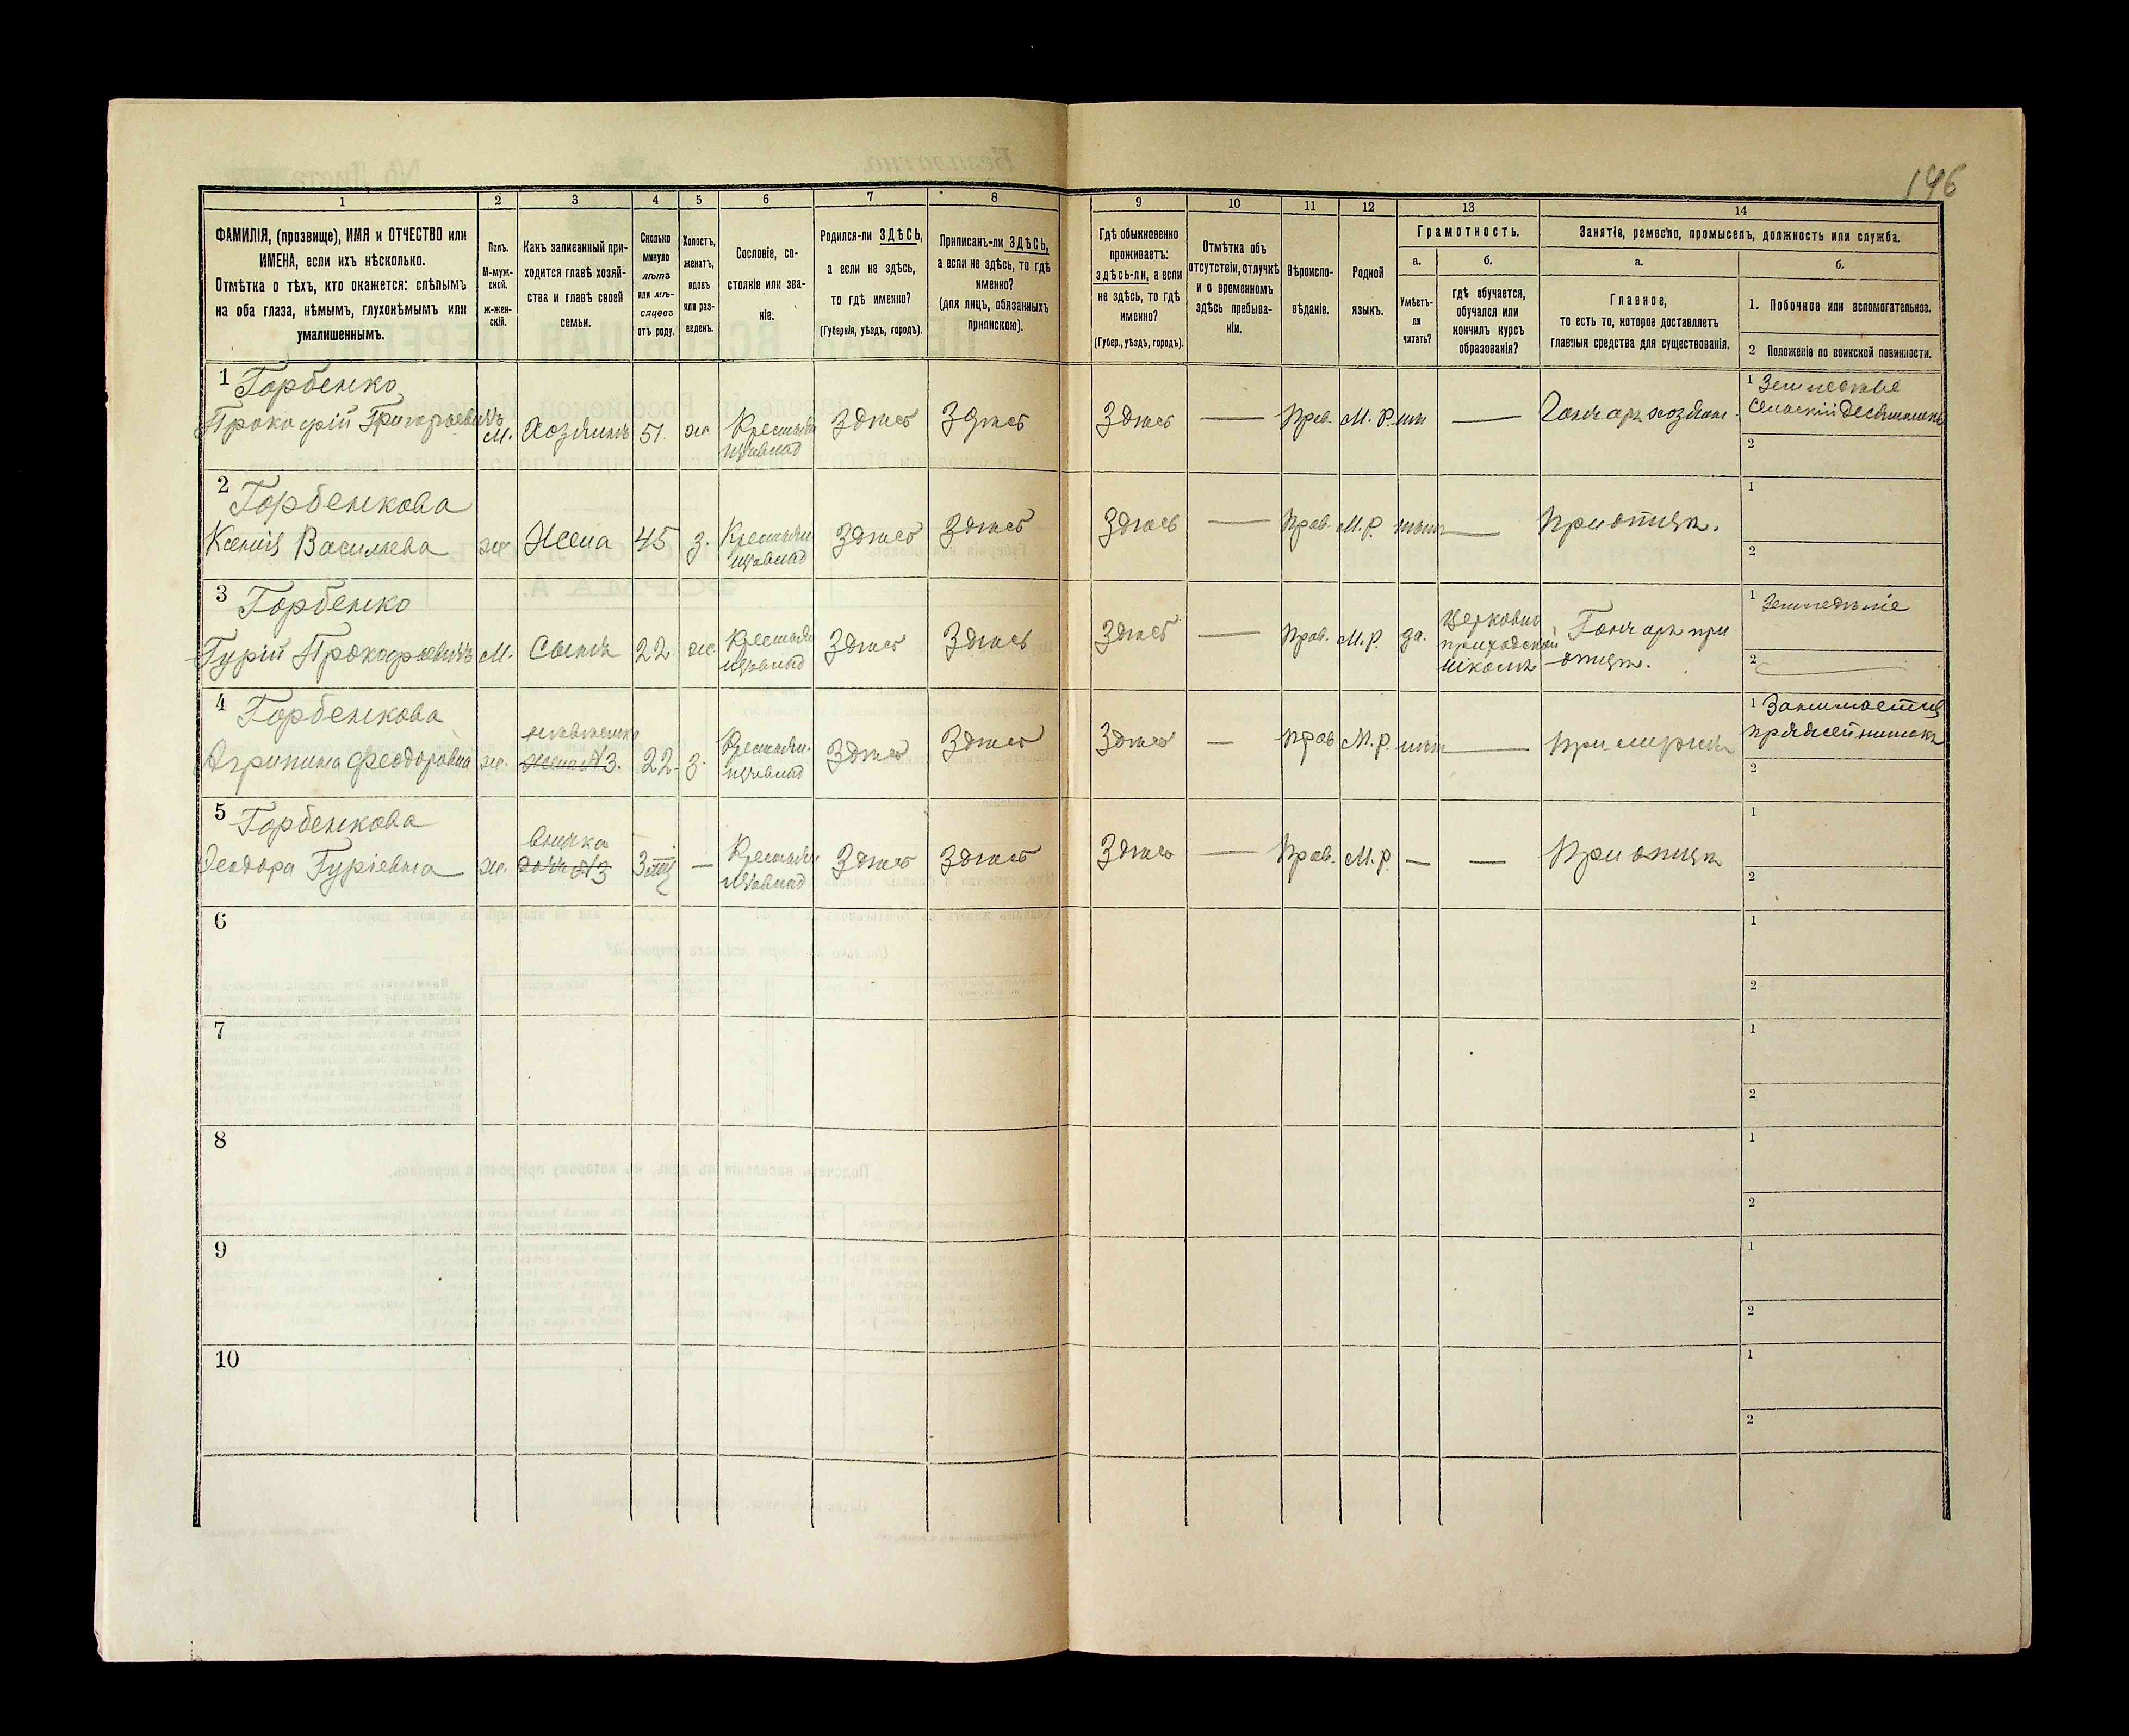 146
1 2 3 4 5 6 7 8 9 10 11 12 13 14
ФАМИЛІЯ, (прозвище), ИМЯ и ОТЧЕСТВО или
ИМЕНА, если ихъ нѣсколько.
Отмѣтка о тѣхъ, кто окажется: слѣпымъ
на оба глаза, нѣмымъ, глухонѣмымъ или
умалишеннымъ.
Полъ.
М-муж-
ской.
ж-жен-
скій.
Какъ записанный при-
ходится главѣ хозяй-
ства и главѣ своей
семьи.
Сколько
минуло
лѣтъ
или мѣ-
сяцевъ
отъ роду.
Холостъ,
женатъ,
вдовъ
или раз-
веденъ.
Сословіе, со-
стояніе или зва-
ніе.
Родился-ли ЗДѢСЬ,
а если не здѣсь,
то гдѣ именно?
(Губернія, уѣздъ, городъ).
Приписанъ-ли ЗДѢСЬ,
а если не здѣсь, то гдѣ
именно?
(для лицъ, обязанныхъ
припискою).
Гдѣ обыкновенно
проживаетъ:
здѣсь-ли, а если
не здѣсь, то гдѣ
именно?
(Губер., уѣздъ, городъ).
Отмѣтка объ
отсутствіи, отлучкѣ
и о временномъ
здѣсь пребыва-
ніи.
Вѣроиспо-
вѣданіе.
Родной
языкъ.
Грамотность.
а.
Умѣетъ-
ли
читать?
б.
гдѣ обучается,
обучался или
кончилъ курсъ
образованія?
Занятіе, ремесло, промыселъ, должность или служба.
а.
Главное,
то есть то, которое доставляетъ
главныя средства для существованія.
б.
1. Побочное или вспомогательное.
2 Положеніе по воинской повинности.
1 Горбенко
Прокофій Григорьевичъ
М. Хозяинъ 51. ж Крестьян
Здѣсь Здѣсь Здѣсь — Прав. М. Р. — Гончаръ хозяин.
1 Земледѣліе
Сельскій Десятникъ
2
2 Горбенкова
Ксенія Васильева
ж Жена 45 з. Крестьян
Здѣсь Здѣсь Здѣсь — Прав. М. Р. нѣтъ — При отцѣ.
1
2
3 Горбенко
Гурій Прокофьевичъ
М. Сынъ 22 ж Крестьян
Здѣсь Здѣсь Здѣсь — Прав. М. Р. да.
Церковно
приходской
школѣ
Гончаръ при
отцѣ.
1 Земледѣліе
2
4 Горбенкова
Агрипина Феодоровна
ж. невѣстка
жена №3. 22. з. Крестьян.
Здѣсь Здѣсь Здѣсь — Прав М. Р. нѣтъ — При мужѣ
1 Занимается
пряжей нитокъ
2
5 Горбенкова
Феодора Гуріевна
ж. внучка
дочь №3 3 — Крестьян
Здѣсь Здѣсь Здѣсь — Прав. М. Р. — — При отцѣ
1
2
6
1
2
7
1
2
8
1
2
9
1
2
10
1
2